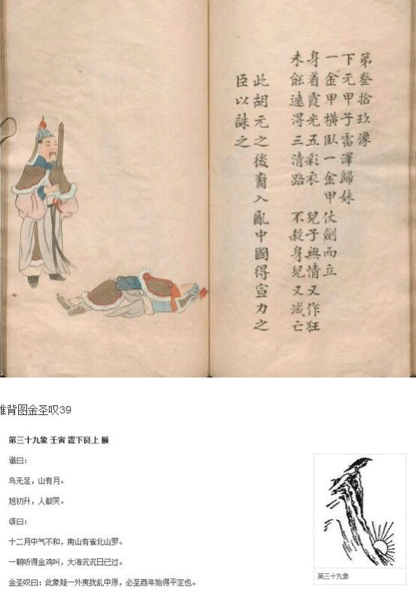 第叁拾玖像
下元甲子雷澤歸妹
一金甲橫臥一金甲仗劍而立
身着霞光五彩衣 兒子無情又作狂
未能遠得三清路 不殺身兒又滅亡
此胡元之後裔入亂中國得宣力之
臣以誅之
推背图金圣叹39
第三十九象 壬寅 震下艮上 颐
谶曰：
鸟无足，山有月。
旭初升，人都哭。
颂曰：
十二月中气不和，南山有雀北山罗。
一朝听得金鸡叫，大海沉沉日已过。
金圣叹曰：此象疑一外夷扰乱中原，必至酉年始得平定也。
第三十九象